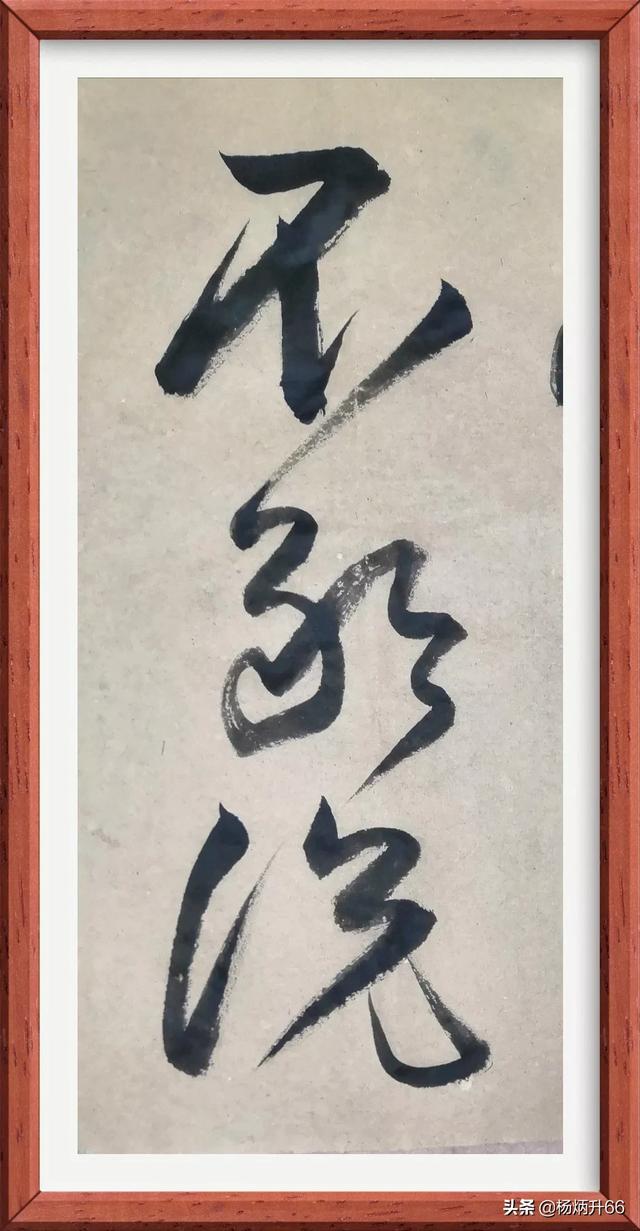 不敢说
头条 @杨炳升66